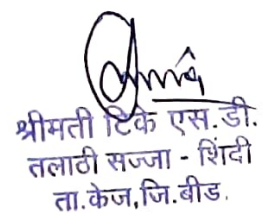 श्रीमती टिके एस.डी.
तलाठी सज्जा - शिंदी
ता.केज,जि.बीड.